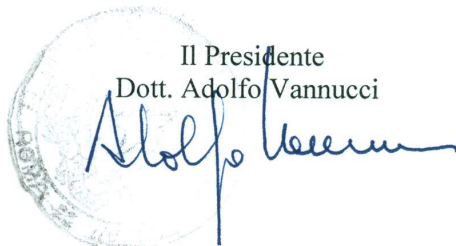 Il Presidente
Dott. Adolfo Vannucci
Adolfo Vannucci
ROMA